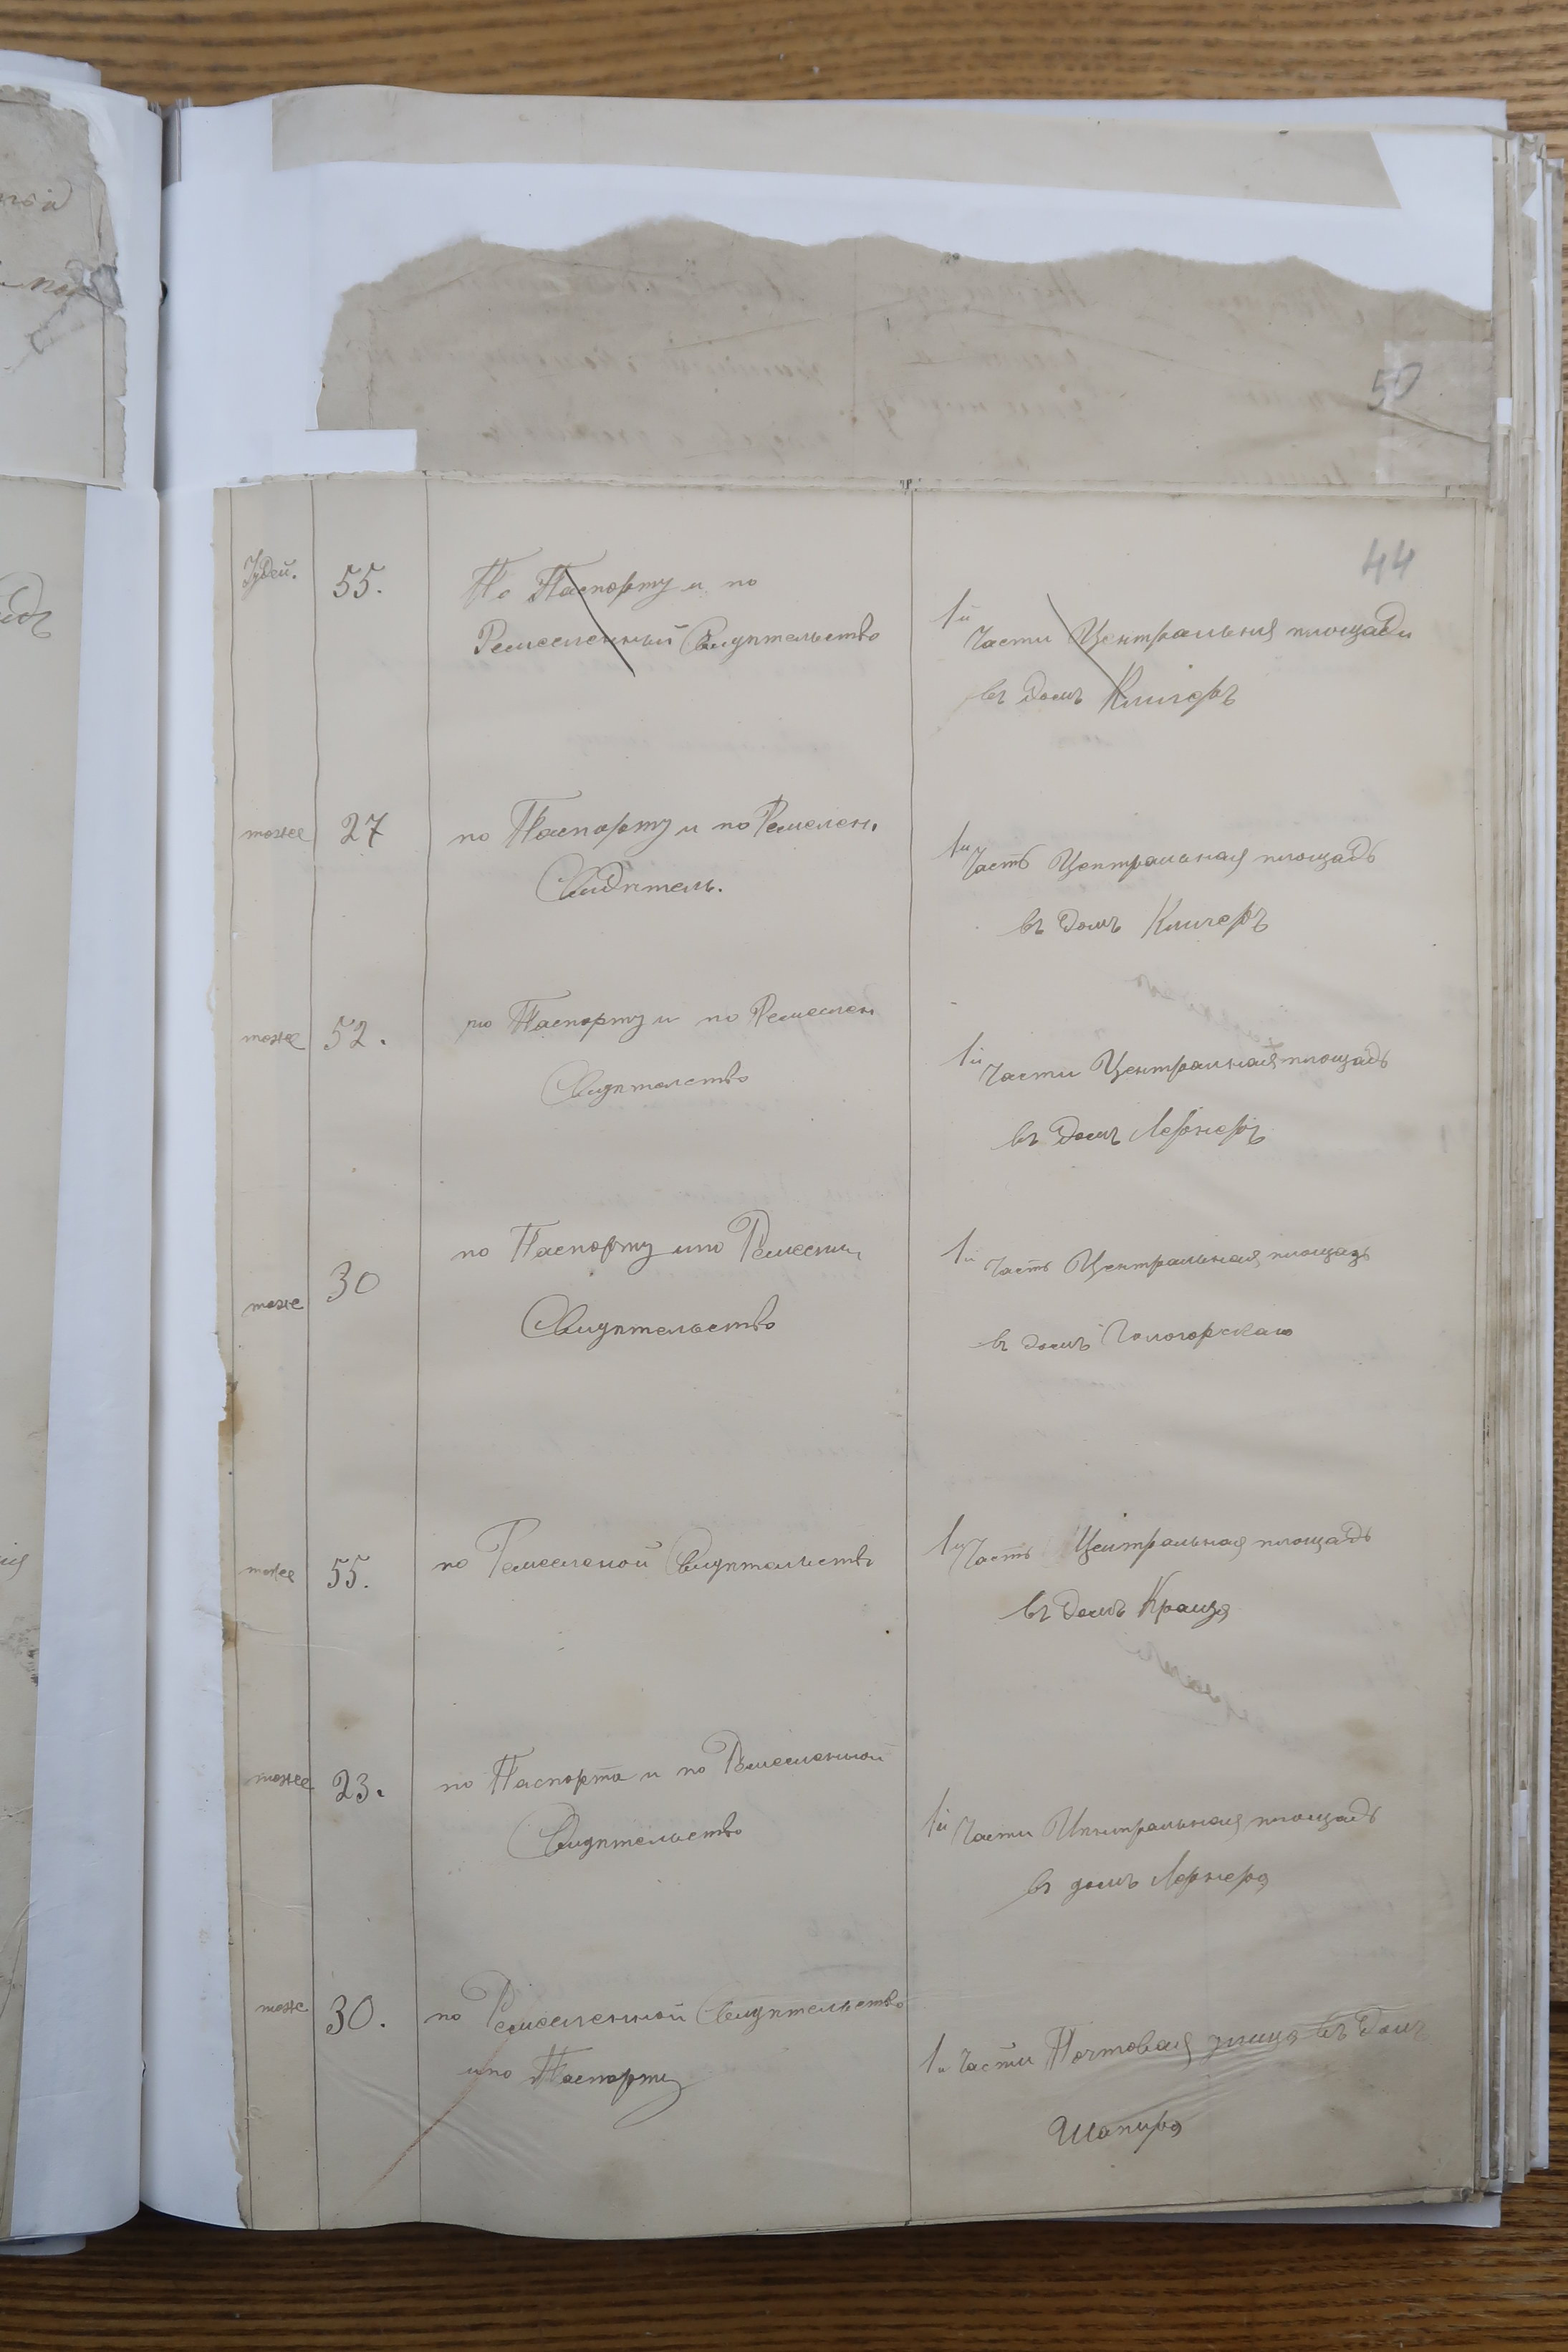 50
44
Іудей. 55. По Паспорту и по
Ремесленный Свидѣтельство
1й Части Центральная площади
въ домѣ Клигеръ
тоже 27 по Паспорту и по Ремеслен.
Свидѣтель.
1й Часть Центральная площадь
въ домѣ Клигеръ
тоже 52. по Паспорту и по Ремеслен
Свидѣтелство
1й Части Центральная площадь
въ домѣ Лернеръ
тоже 30 по Паспорту и по
Свидѣтельство
1й Часть Центральная площадь
въ домѣ Гологорскаго
тоже 55. по Ремесленой Свидѣтельство
1й Часть Центральная площадь
въ домѣ Краица
тоже 23. по Паспорта и по Ремесленной
Свидѣтельство
1й Части Центральная площадь
въ домѣ Лернера
тоже 30. по Ремесленной Свидѣтельство
и по Паспорту
1й Части Почтовая улица въ домѣ
Шапира